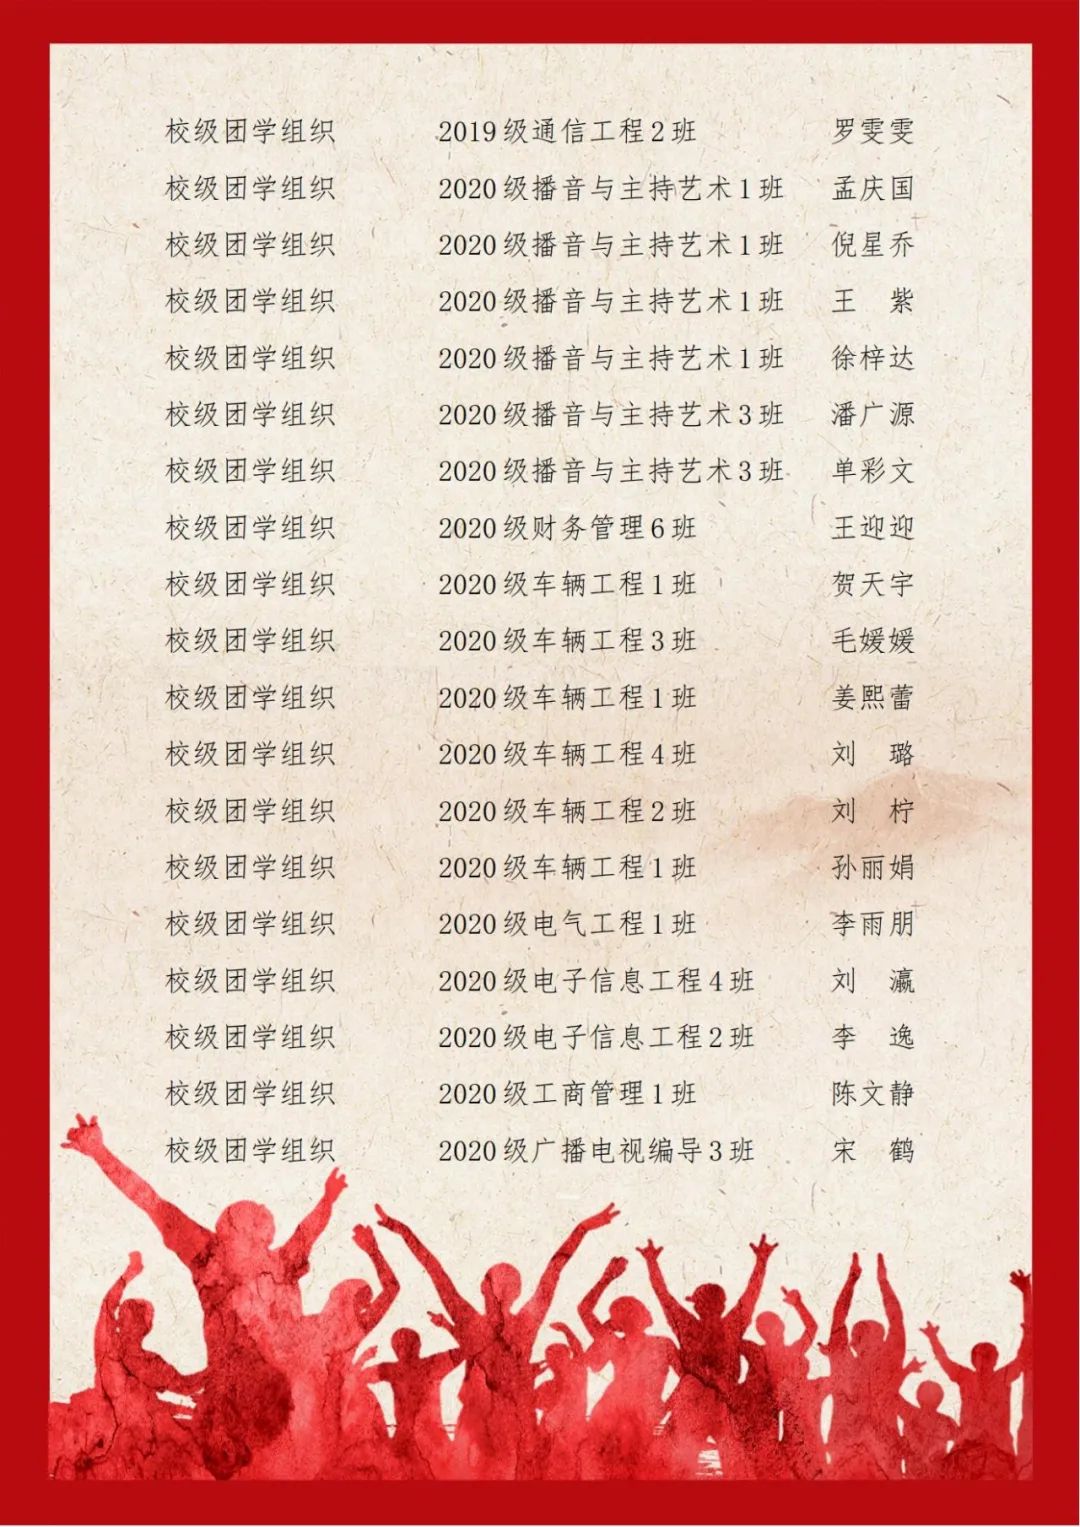 校级团学组织 2019级通信工程2班 罗雯雯
校级团学组织 2020级播音与主持艺术1班 孟庆国
校级团学组织 2020级播音与主持艺术1班 倪星乔
校级团学组织 2020级播音与主持艺术1班 王 紫
校级团学组织 2020级播音与主持艺术1班 徐梓达
校级团学组织 2020级播音与主持艺术3班 潘广源
校级团学组织 2020级播音与主持艺术3班 单彩文
校级团学组织 2020级财务管理6班 王迎迎
校级团学组织 2020级车辆工程1班 贺天宇
校级团学组织 2020级车辆工程3班 毛媛媛
校级团学组织 2020级车辆工程1班 姜熙蕾
校级团学组织 2020级车辆工程4班 刘 璐
校级团学组织 2020级车辆工程2班 刘 柠
校级团学组织 2020级车辆工程1班 孙丽娟
校级团学组织 2020级电气工程1班 李雨朋
校级团学组织 2020级电子信息工程4班 刘 瀛
校级团学组织 2020级电子信息工程2班 李 逸
校级团学组织 2020级工商管理1班 陈文静
校级团学组织 2020级广播电视编导3班 宋 鹤